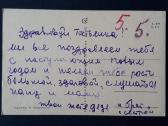 5. 5.
Здравствуй Татьянка
мы все поздравляем тебя
с наступающим Новым
годом и желаем тебе расти
большой, здоровой, слушаться
папу и маму.
твои тетя дедя и брат
с сестрой